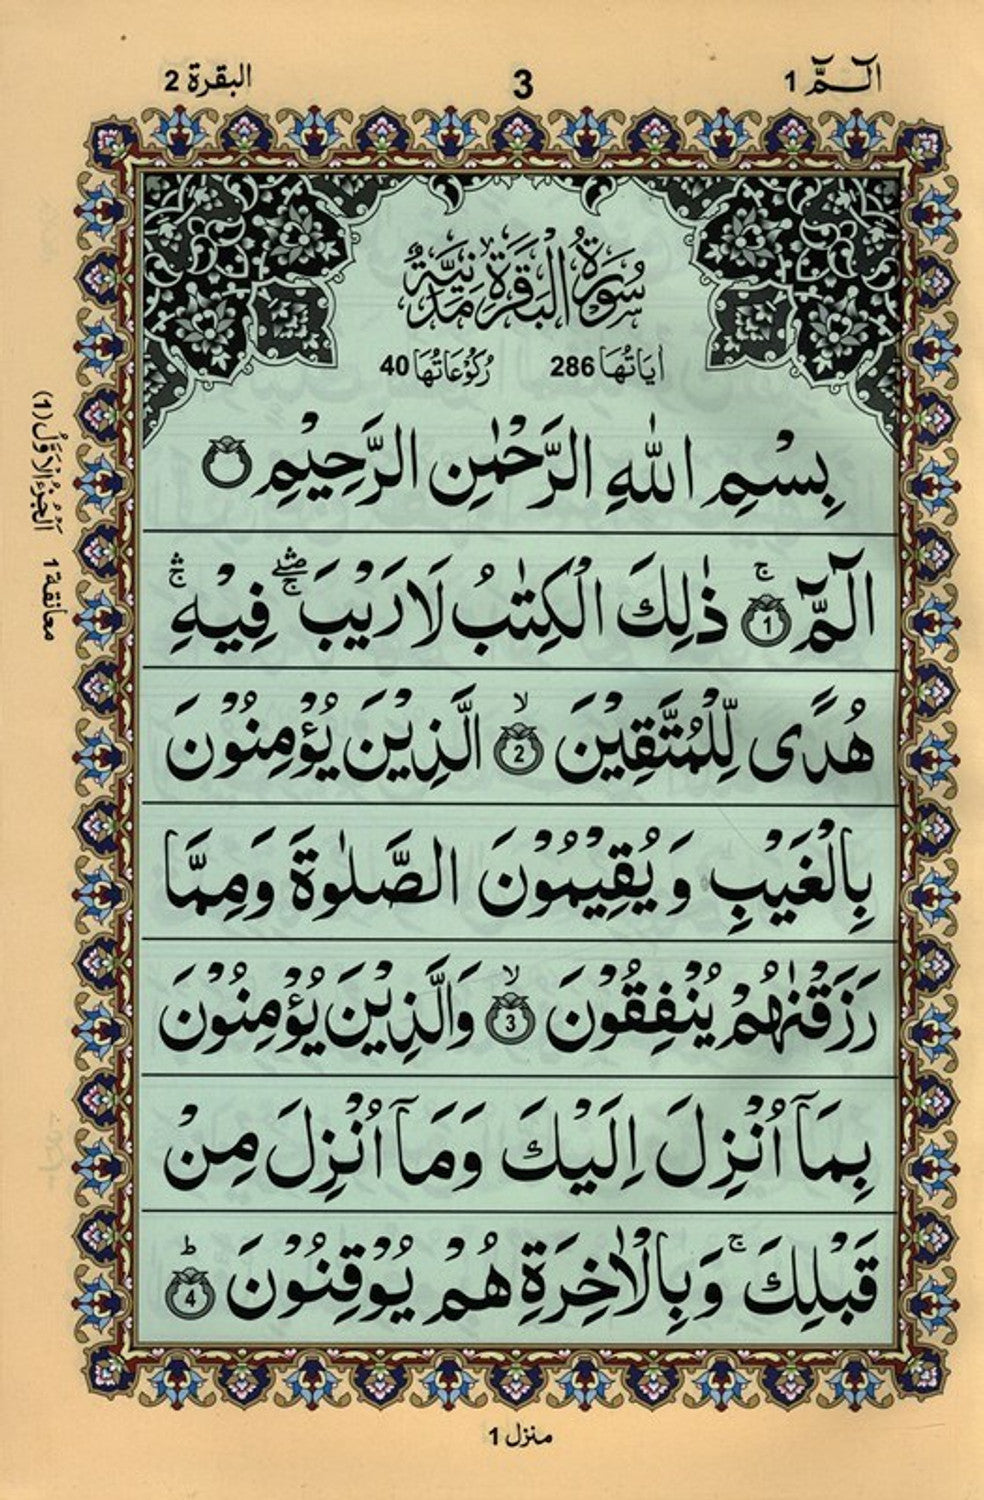 الٓـمّٓ 1
3
البقرة 2
سُوْرَةُ الْبَقَرَةِ مَدَنِيَّةٌ
اٰيَاتُهَا 286 رُكُوْعَاتُهَا 40
بِسْمِ اللّٰهِ الرَّحْمٰنِ الرَّحِيْمِ
الٓمّٓ ۚ 1 ذٰلِكَ الْكِتٰبُ لَا رَيْبَ ۖۛۚ فِيْهِ ۛۚ
هُدًى لِّلْمُتَّقِيْنَ ۙ 2 الَّذِيْنَ يُؤْمِنُوْنَ
بِالْغَيْبِ وَيُقِيْمُوْنَ الصَّلٰوةَ وَمِمَّا
رَزَقْنٰهُمْ يُنْفِقُوْنَ ۙ 3 وَالَّذِيْنَ يُؤْمِنُوْنَ
بِمَآ اُنْزِلَ اِلَيْكَ وَمَآ اُنْزِلَ مِنْ
قَبْلِكَ ۚ وَبِالْاٰخِرَةِ هُمْ يُوْقِنُوْنَ ؕ 4
اَلْجُزْءُ الْاَوَّلُ (1)
معانقة 1
منزل 1